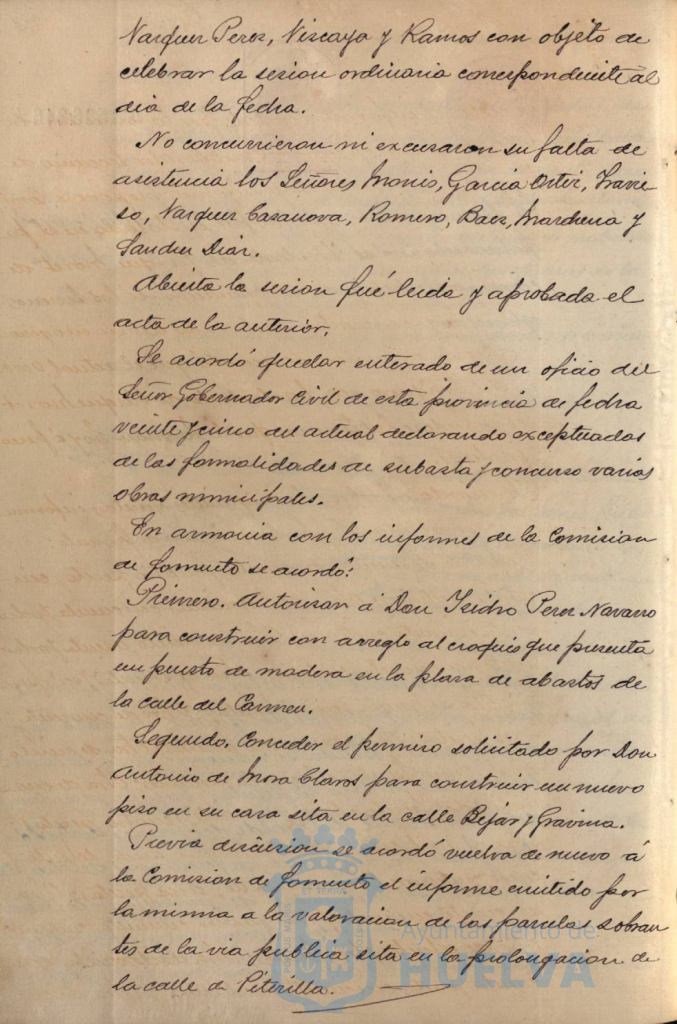 Varquer Perez, Viscaya y Ramos con objeto de
celebrar la sesion ordinaria correspondiente al
dia de la fecha.
No concurrieron ni excusaron su falta de
asistencia los Señores Monis, Garcia Ortiz, Travie-
so, Varquer Casanova, Romero, Baez, Marchena y
Sanchez Diaz.
Abierta la sesion fué leida y aprobada el
acta de la anterior.
Se acordó quedar enterado de un oficio del
Señor Gobernador Civil de esta provincia de fecha
veinte y cinco del actual declarando exceptuadas
de las formalidades de subasta y concurso varias
obras municipales.
En armonia con los informes de la Comision
de fomento se acordó:
Primero. Autorizar á Don Isidro Perez Navarro
para construir con arreglo al croquis que presenta
un puesto de madera en la plaza de abastos de
la calle del Carmen.
Segundo. Conceder el permiso solicitado por Don
Antonio de Mora Claros para construir un nuevo
piso en su casa sita en la calle Bejar y Gravina.
Previa discusion se acordó vuelva de nuevo á
la Comision de fomento el informe emitido por
la misma a la valoracion de las parcelas sobran
tes de la via publica sita en la prolongacion de
la calle de Piterilla.
Ayuntamiento de
HUELVA